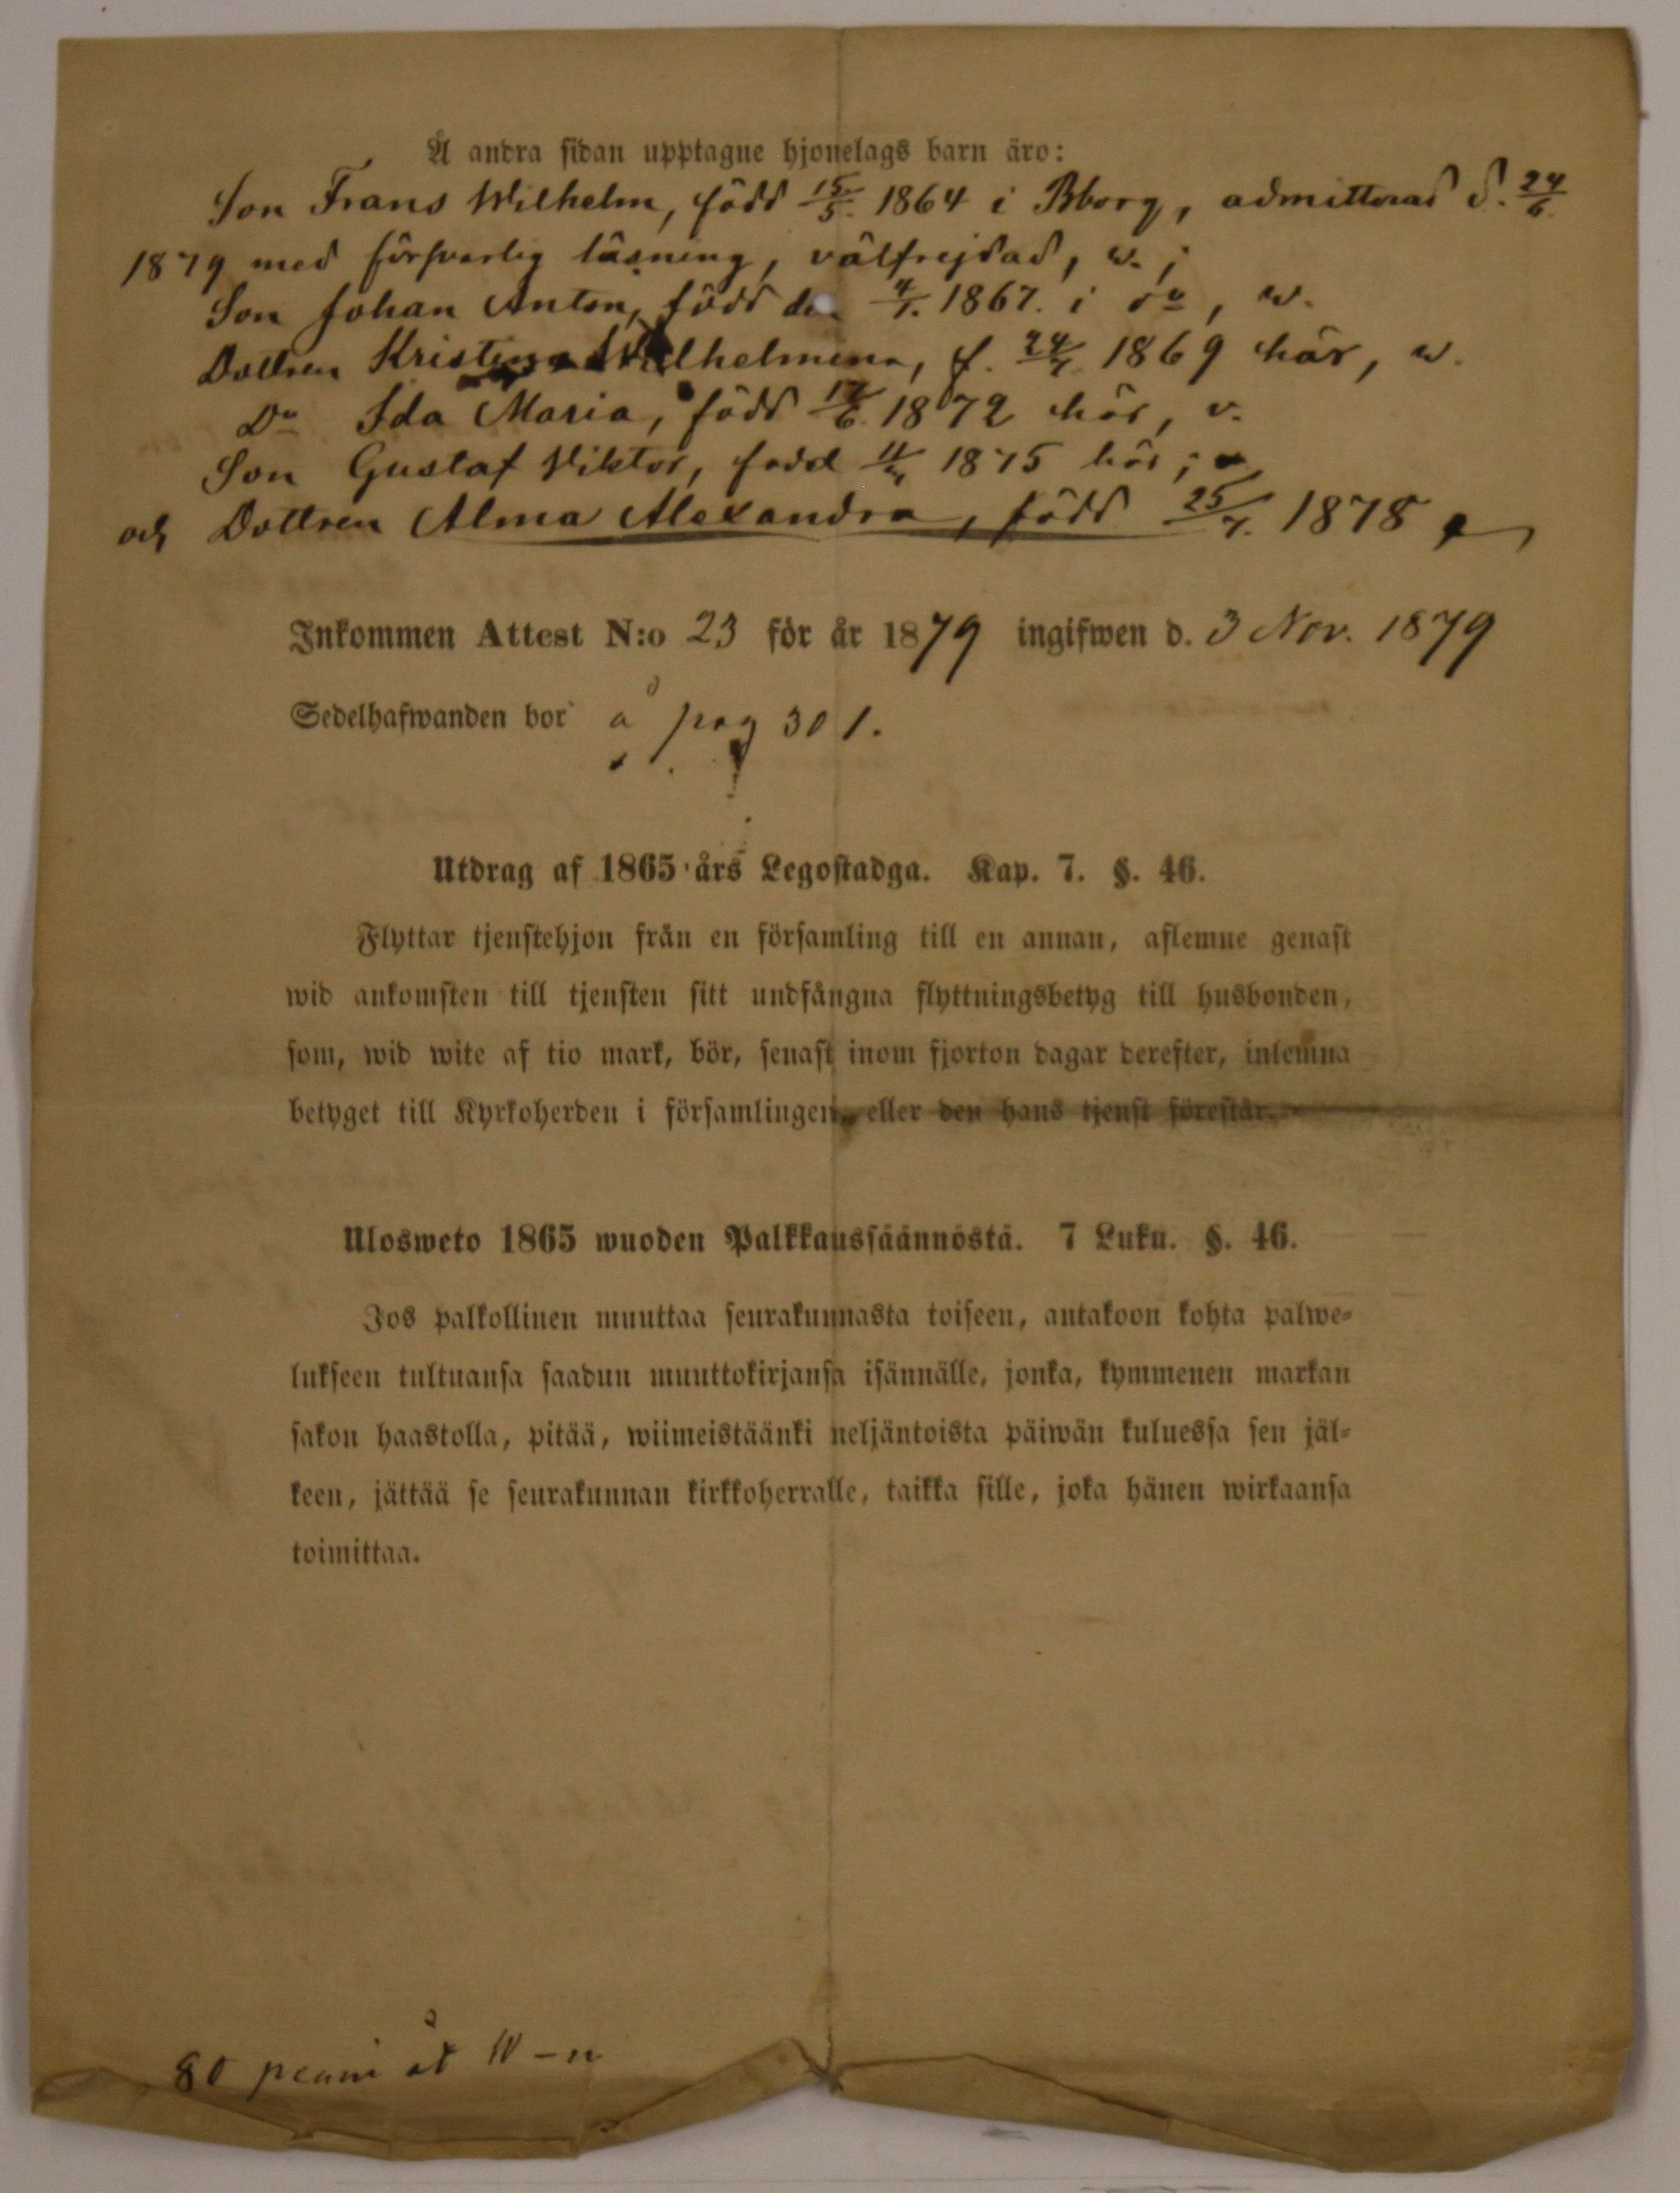 Å andra sidan upptagne hjonelags barn äro:
Son Frans Wilhelm, född 15/5. 1864 i Bborg, admitterad d. 24/6.
1879 med försvarlig läsning, välfrejdad, w. ;
Son Johan Anton, född den 4/1. 1867. i do, w.
Dottren Kristina Wilhelmina, f. 24/7. 1869 här, w.
Do Ida Maria, född 17/6. 1872 här, v.
Son Gustaf Viktor, född 1875 här ;
och Dottren Alma Alexandra, född 25/7. 1878
Inkommen Attest N:o 23 för år 1879 ingifwen d. 3 Nov. 1879
Sedelhafwanden bor å pag 301.
Utdrag af 1865 års Legostadga. Kap. 7. §. 46.
Flyttar tjenstehjon från en församling till en annan, aflemne genast
wid ankomsten till tjensten sitt undfångna flyttningsbetyg till husbonden,
som, wid wite af tio mark, bör, senast inom fjorton dagar derefter, inlemna
betyget till Kyrkoherden i församlingen, eller den hans tjenst förestår.
Ulosweto 1865 wuoden Palkkaussäännöstä. 7 Luku. §. 46.
Jos palkollinen muuttaa seurakunnasta toiseen, antakoon kohta palwe-
lukseen tultuansa saadun muuttokirjansa isännälle, jonka, kymmenen markan
sakon haastolla, pitää, wiimeistäänki neljäntoista päiwän kuluessa sen jäl-
keen, jättää se seurakunnan kirkkoherralle, taikka sille, joka hänen wirkaansa
toimittaa.
80 penni åt W-n